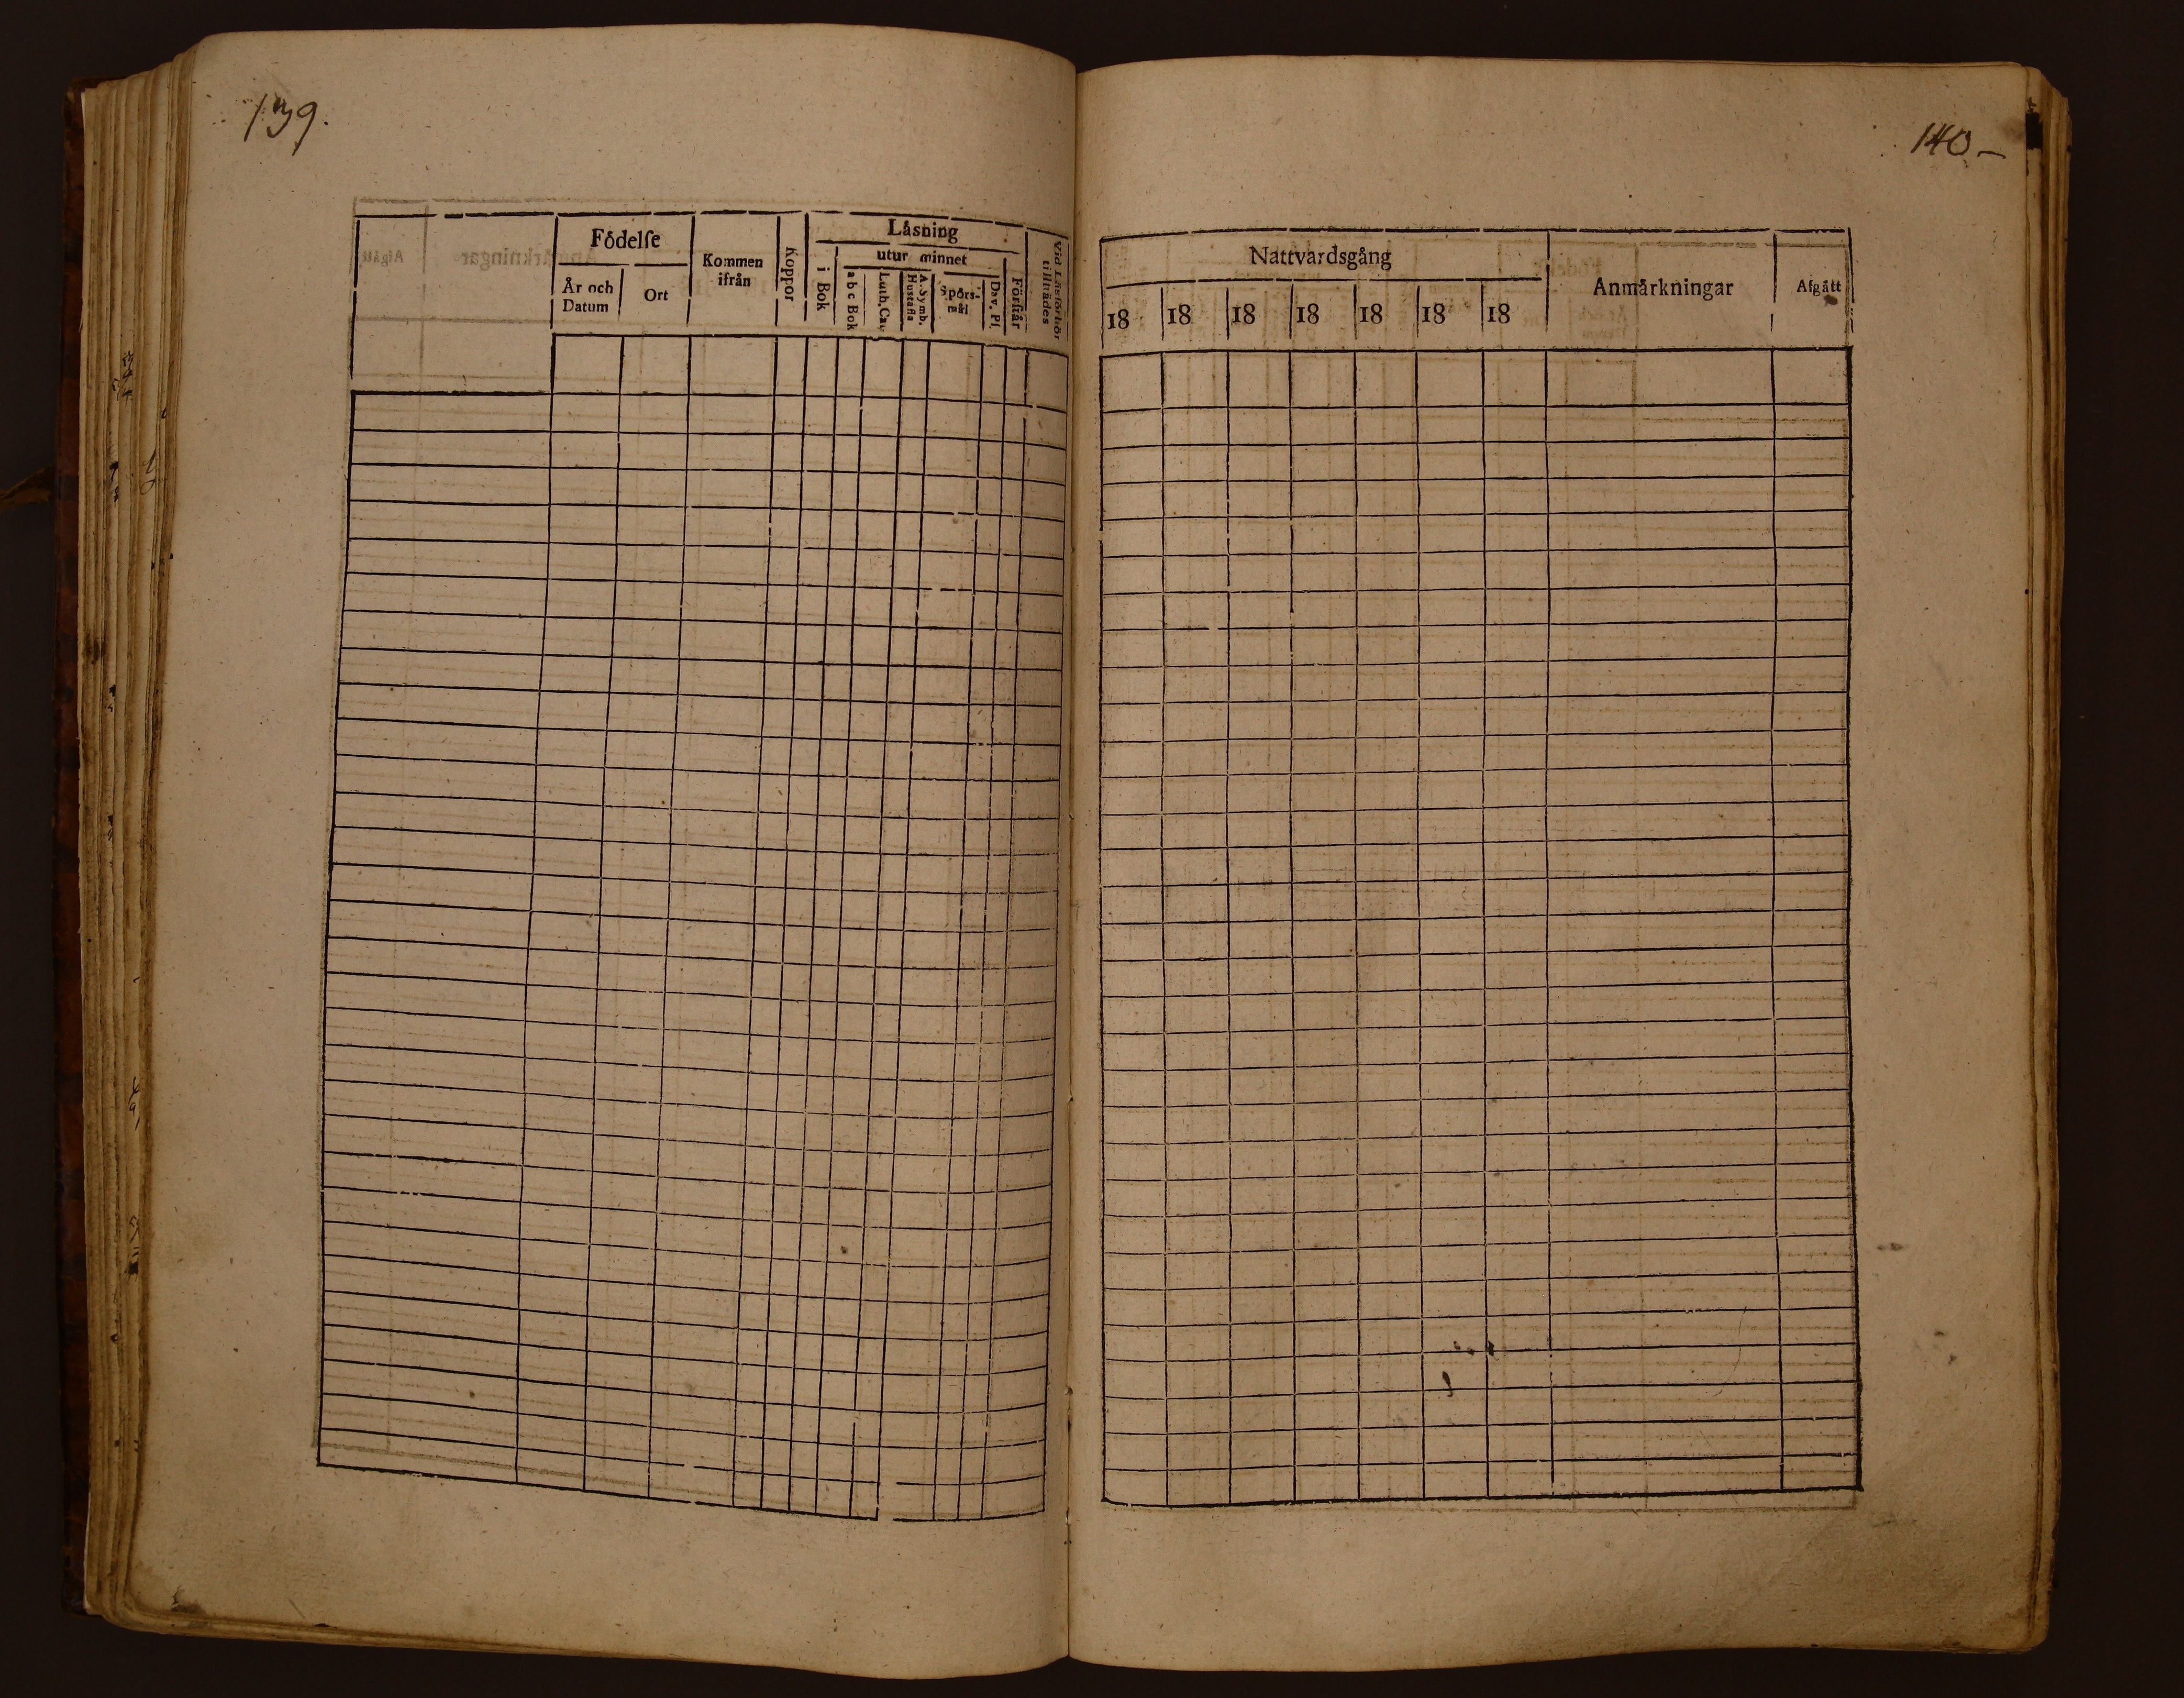 139.
Födelſe
År och Datum
Ort
Kommen ifrån
Koppor
Låsning
i Bok
utur minnet
a b c Bok
Luth. Cat.
A. Symb. Hustafla
Spörs-mål
Dav. Pſ.
Förſtår
Vid Läsförhör tillſtädes
140-
Nattvardsgång
18 18 18 18 18 18 18
Anmårkningar
Afgått